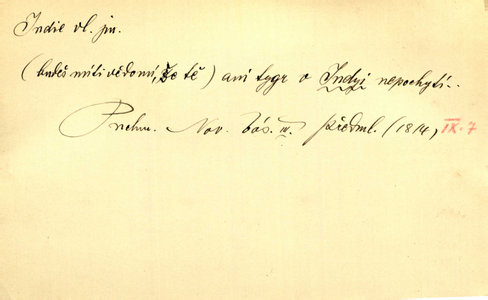 Indie vl. jm.
(budeš míti vědomí, že tě) ani tygr v Indyi nepochytí..
Puchm. Nov. bás. IV. předml. (1814) IX. 7